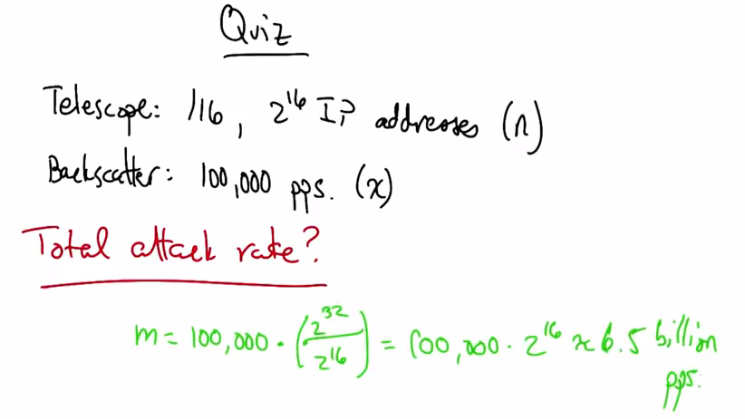 Quiz
Telescope: /16, 2^16 IP addresses (n)
Backscatter: 100,000 pps. (x)
Total attack rate?
m = 100,000 · (2^32/2^16) = 100,000 · 2^16 ≈ 6.5 billion
pps.